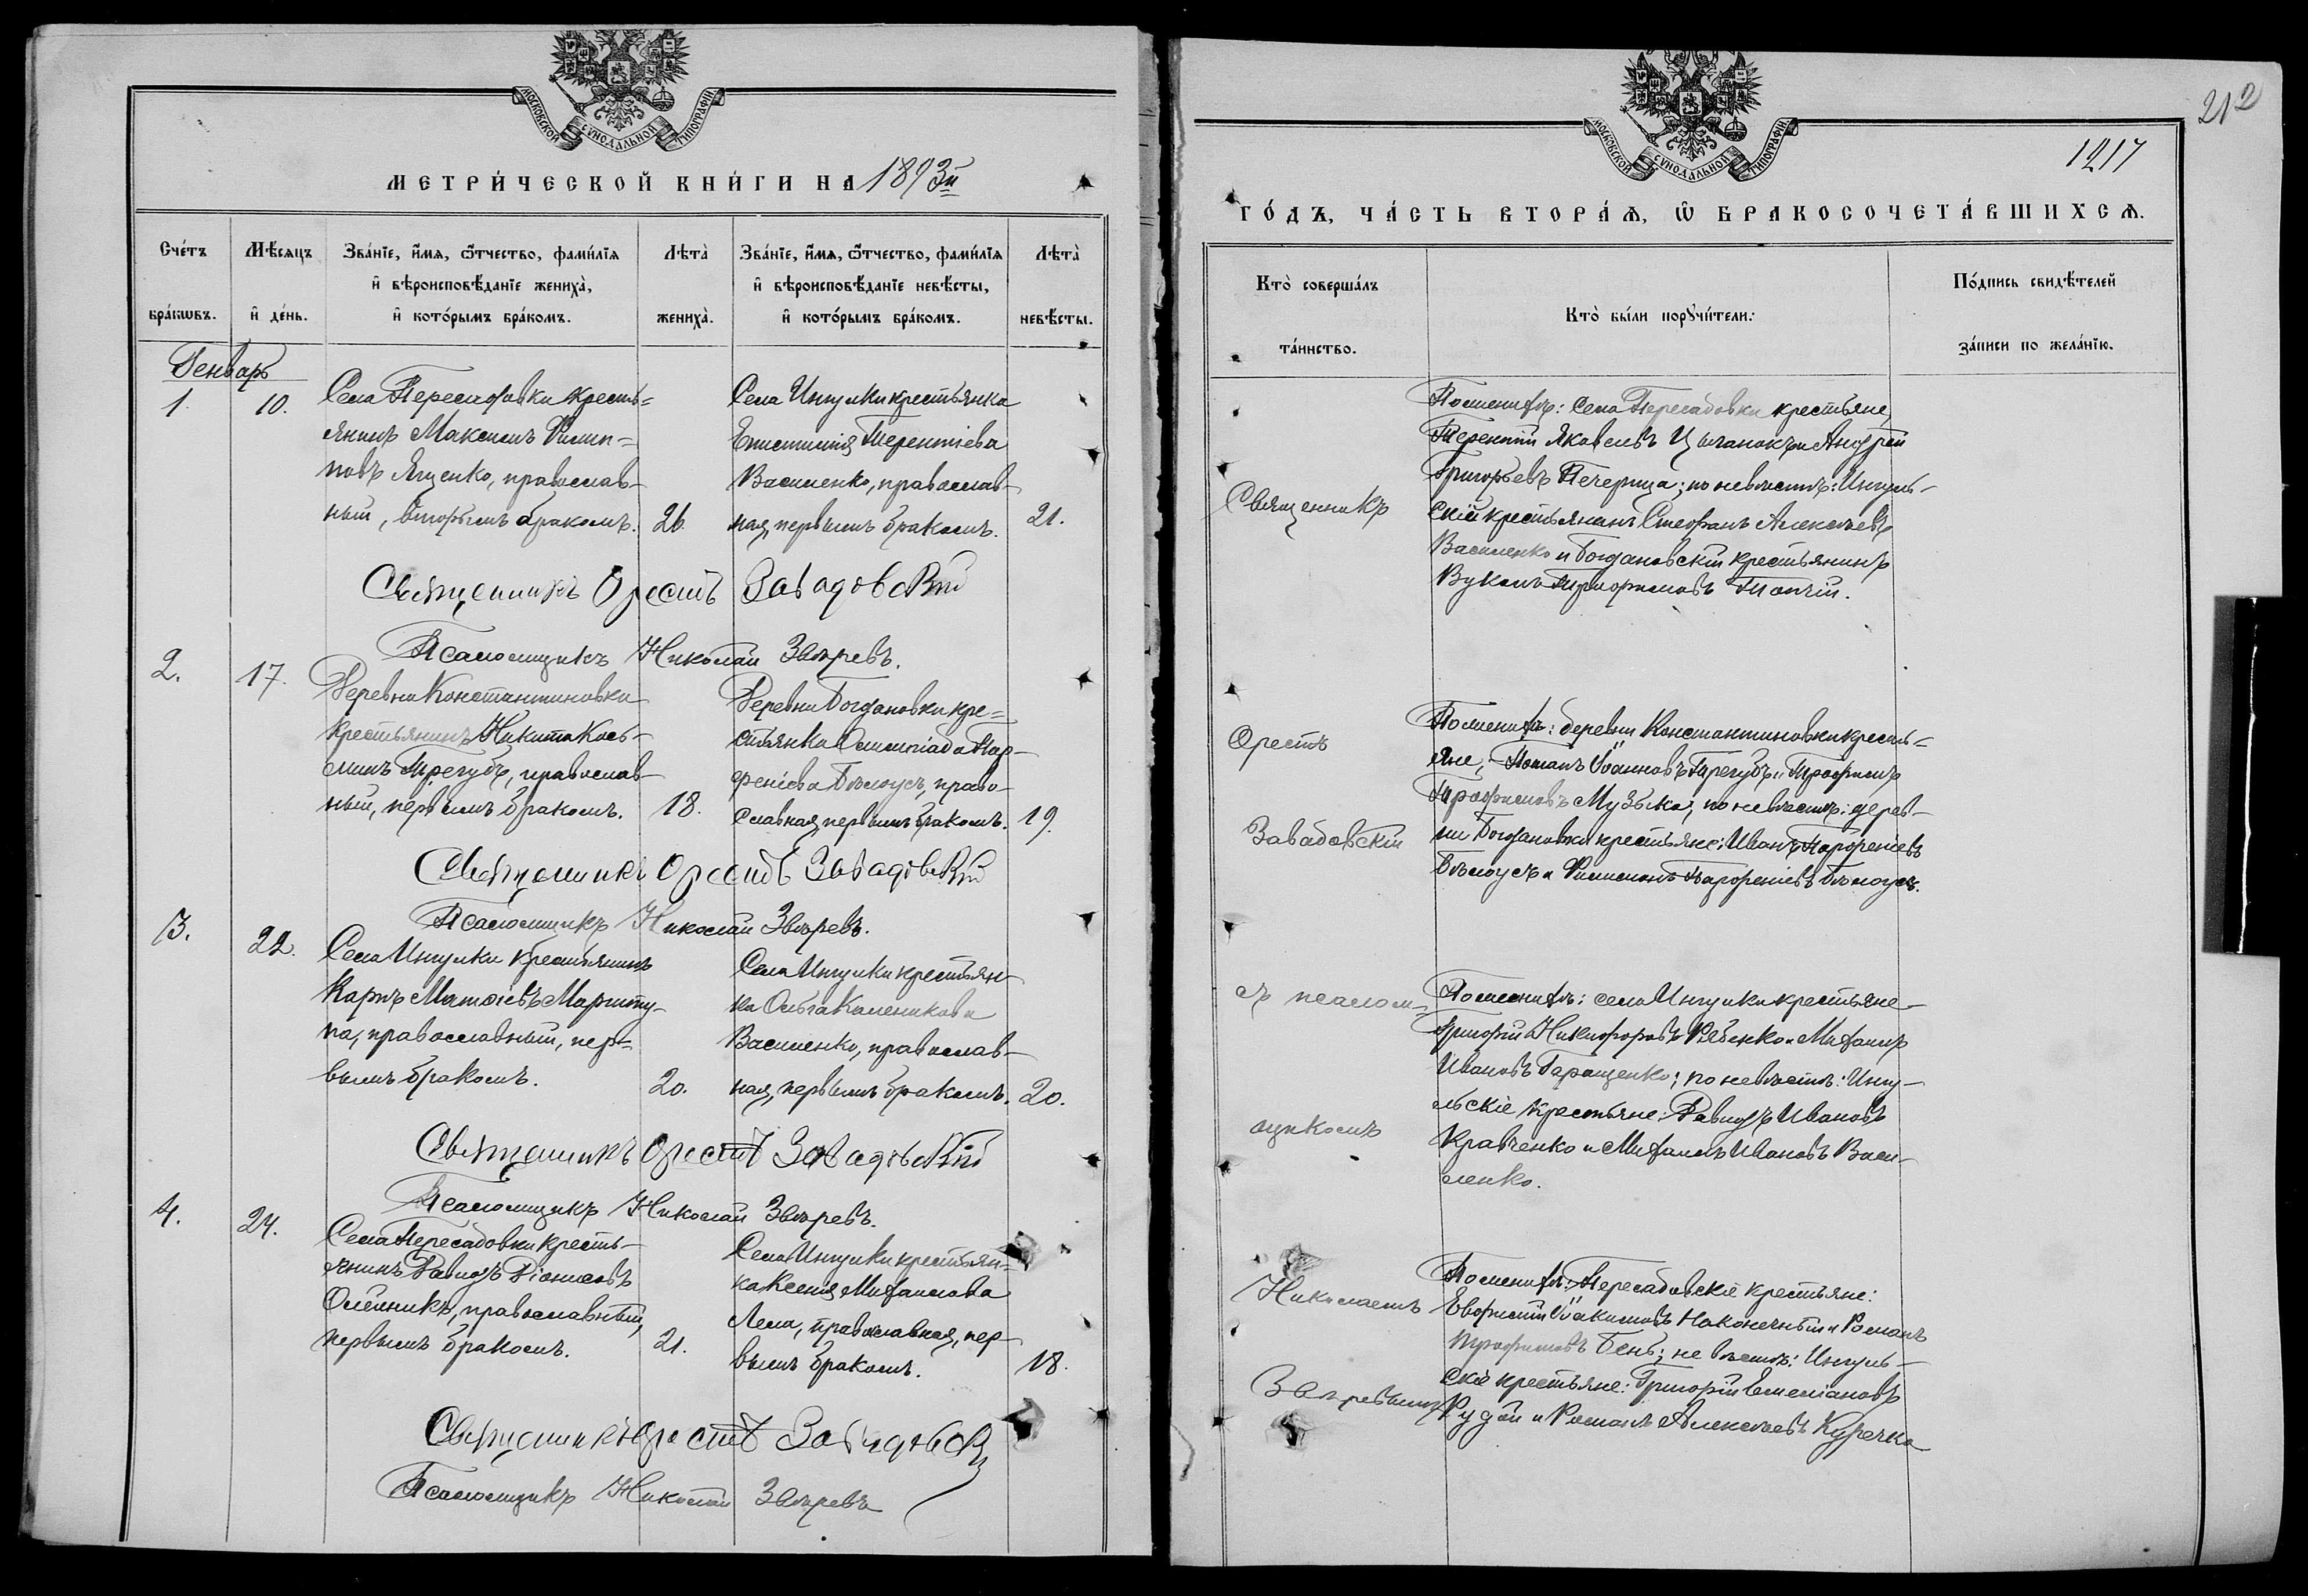 МОСКОВСКОЙ СѴНОДАЛЬНОЙ ТИПОГРАФІИ
МЕТРИ́ЧЕСКОЙ КНИ́ГИ НА 1893й
Сче́тъ бра́кѡвъ.
Мѣ́сяцъ и҆ де́нь.
Зва́нїе, и҆́мѧ, ѻ҆́тчество, фами́лїѧ
и҆ вѣроисповѣ́данїе жениха̀,
и҆ кото́рымъ бра́комъ.
Лѣта̀ жениха̀.
Зва́нїе, и҆́мѧ, ѻ҆́тчество, фами́лїѧ
и҆ вѣроисповѣ́данїе невѣ́сты,
и҆ кото́рымъ бра́комъ.
Лѣта̀ невѣ́сты.
Генварь
1. 10.
Села Пересадовки кресть=
янинъ Максимъ Филип=
повъ Яценко, православ-
ный, вторымъ бракомъ. 26.
Села Ингулки крестьянка
Епистимія Терентіева
Василенко, православ-
ная, первымъ бракомъ. 21.
Священникъ Орестъ Завадовскій
Псаломщикъ Николай Звѣревъ.
2. 17.
Деревни Константиновки
крестьянинъ Никита Кось-
минъ Трегубъ, православ-
ный, первымъ бракомъ. 18.
Деревни Богдановки кре=
стьянка Олимпіада Пар-
феніева Бѣлоусъ, право-
славная, первымъ бракомъ. 19.
Священникъ Орестъ Завадовскій
Псаломщикъ Николай Звѣревъ.
3. 22.
Села Ингулки крестьянинъ
Карпъ Матѳіевъ
православный, пер=
вымъ бракомъ. 20.
Села Ингулки крестьян-
ка Ольга Каленикова
Василенко, православ-
ная, первымъ бракомъ. 20.
Священникъ Орестъ Завадовскій
Псаломщикъ Николай Звѣревъ.
4. 24.
Села Пересадовки кресть-
янинъ Давидъ Діонисовъ
Олейникъ, православный,
первымъ бракомъ. 21.
Села Ингулки крестьян=
ка Ксенія Михаилова
Лема, православная, пер-
вымъ бракомъ. 18.
Священникъ Орестъ Завадовск
Псаломщикъ Николай Звѣревъ
212
1217
МОСКОВСКОЙ СѴНОДАЛЬНОЙ ТИПОГРАФІИ
ГО́ДЪ, ЧА́СТЬ ВТОРА́Ѧ, Ѡ҆ БРАКОСОЧЕТА́ВШИХСѦ.
Кто̀ соверша́лъ
та́инство.
Кто̀ бы́ли порꙋчи́тели:
По́дпись свидѣ́телей
за́писи по жела́нїю.
Священникъ
Орестъ
Завадовскій
съ псалом-
щикомъ
Николаемъ
Звѣревымъ
По женихѣ: села Пересадовки крестьяне,
Терентій Яковлевъ Цыганокъ и Андрей
Григорьевъ Печерица; по невѣстѣ: Ингуль-
скій крестьянинъ Стефанъ Алексѣевъ
Василенко и Богдановскій крестьянинъ
Вуколъ Трофимовъ Топчій.
По женихѣ: деревни Константиновки кресть=
яне, Потапъ Іоанновъ Трегубъ и Трофимъ
Трофимовъ Музыка; по невѣстѣ: дерев-
ни Богдановки крестьяне: Иванъ Парфеніевъ
Бѣлоусъ и Филимонъ Парфеніевъ Бѣлоусъ.
По женихѣ: села Ингулки крестьяне
Григорій Никифоровъ Рябенко и Михаилъ
Ивановъ Геращенко; по невѣстѣ: Ингу-
льскіе крестьяне: Давидъ Ивановъ
Кравченко и Михаилъ Ивановъ Васи-
ленко.
По женихѣ: Пересадовскіе крестьяне:
Іоакимовъ Наконечный и Романъ
Трофимовъ Бень; невѣстѣ: Ингуль-
скіе крестьяне: Григорій Емеліановъ
Рудой и Романъ Алексѣевъ Куречко